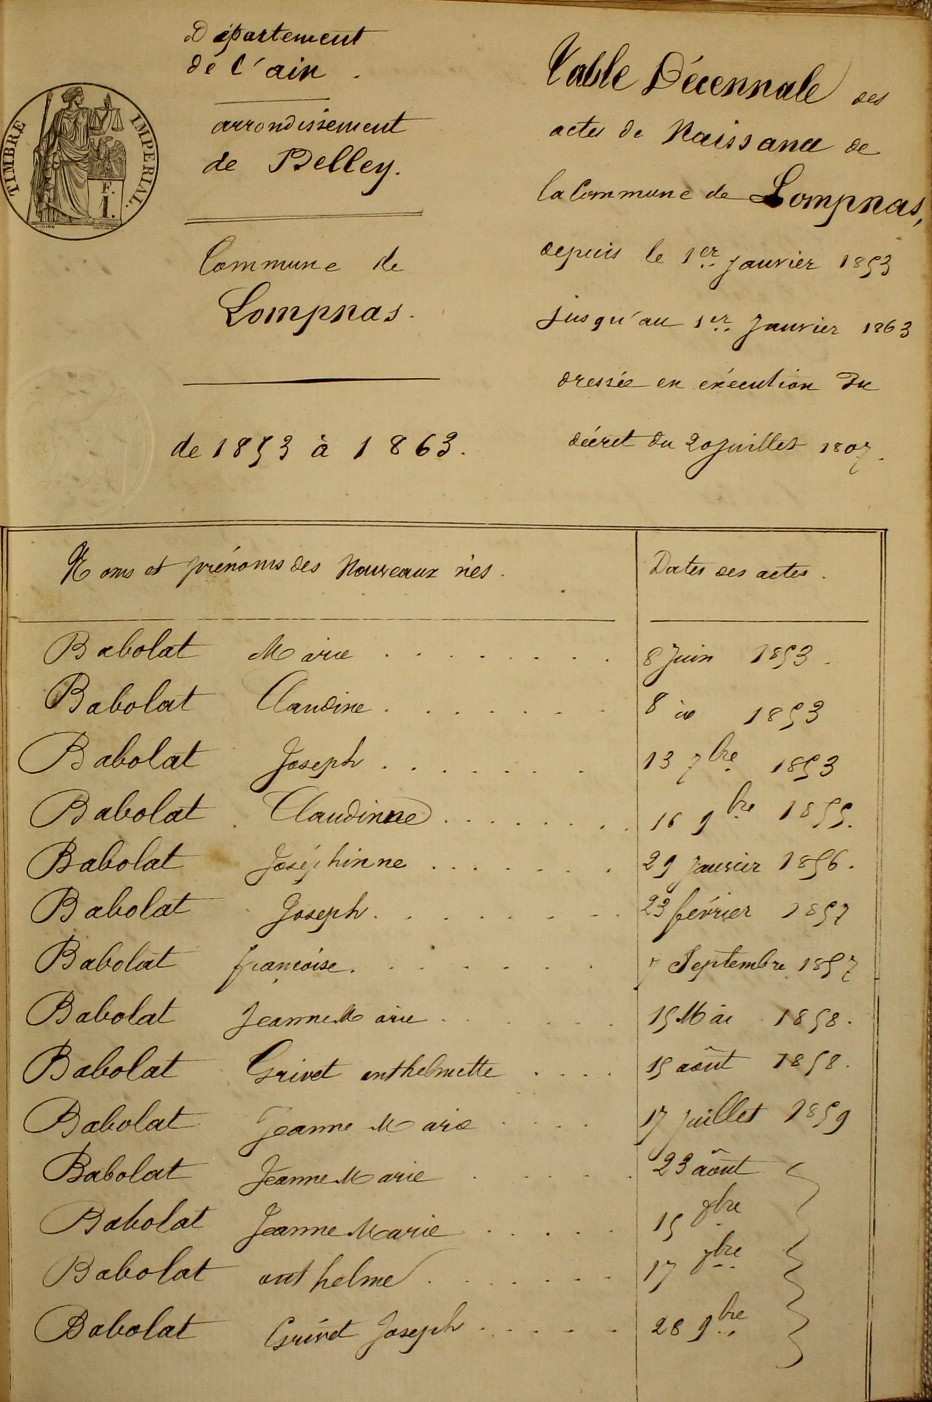 TIMBRE IMPERIAL.
F.
I.
Département
de l'ain.
arrondissement
de Belley.
Commune de
Lompnas.
de 1853 à 1863.
Table Décennale des
actes de Naissance de
la Commune de Lompnas,
depuis le 1er Janvier 1853
jusqu'au 1er Janvier 1863
dressée en exécution du
décret du 20 juillet 1807.
Noms et prénoms des Nouveaux nés. Dates des actes.
Babolat Marie 8 Juin 1853.
Babolat Claudine 8 1853
Babolat Joseph 13 7bre 1853
Babolat Claudinne 16 9bre 1855.
Babolat Joséphinne 29 Janvier 1856.
Babolat Joseph. 23 février 1857
Babolat françoise. Septembre 1857
Babolat Jeanne Marie 15 Mai 1858.
Babolat Grivet anthelmette 15 août 1858.
Babolat Jeanne Marie 17 Juillet 1859
Babolat Jeanne Marie 23 août
Babolat Jeanne Marie 15 8bre
Babolat anthelme 17 7bre
Babolat Grivet Joseph 28 9bre